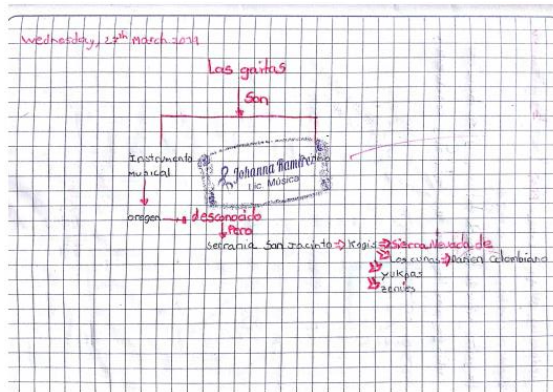 Wednesday, 27th March 2019
Las gaitas
Son
Instrumento
musical
Johanna Ramírez
Lic. Música
oregen → desconocido
Pero
Serrania San Jacinto ⇒ Kogis ⇒ Sierra Nevada de
Los cunas ⇒ Darien Colombiano
yukpas
zenues